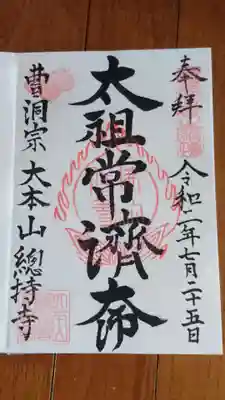 奉拝
令和二年七月二十五日
太祖常濟大師
曹洞宗 大本山 總持寺